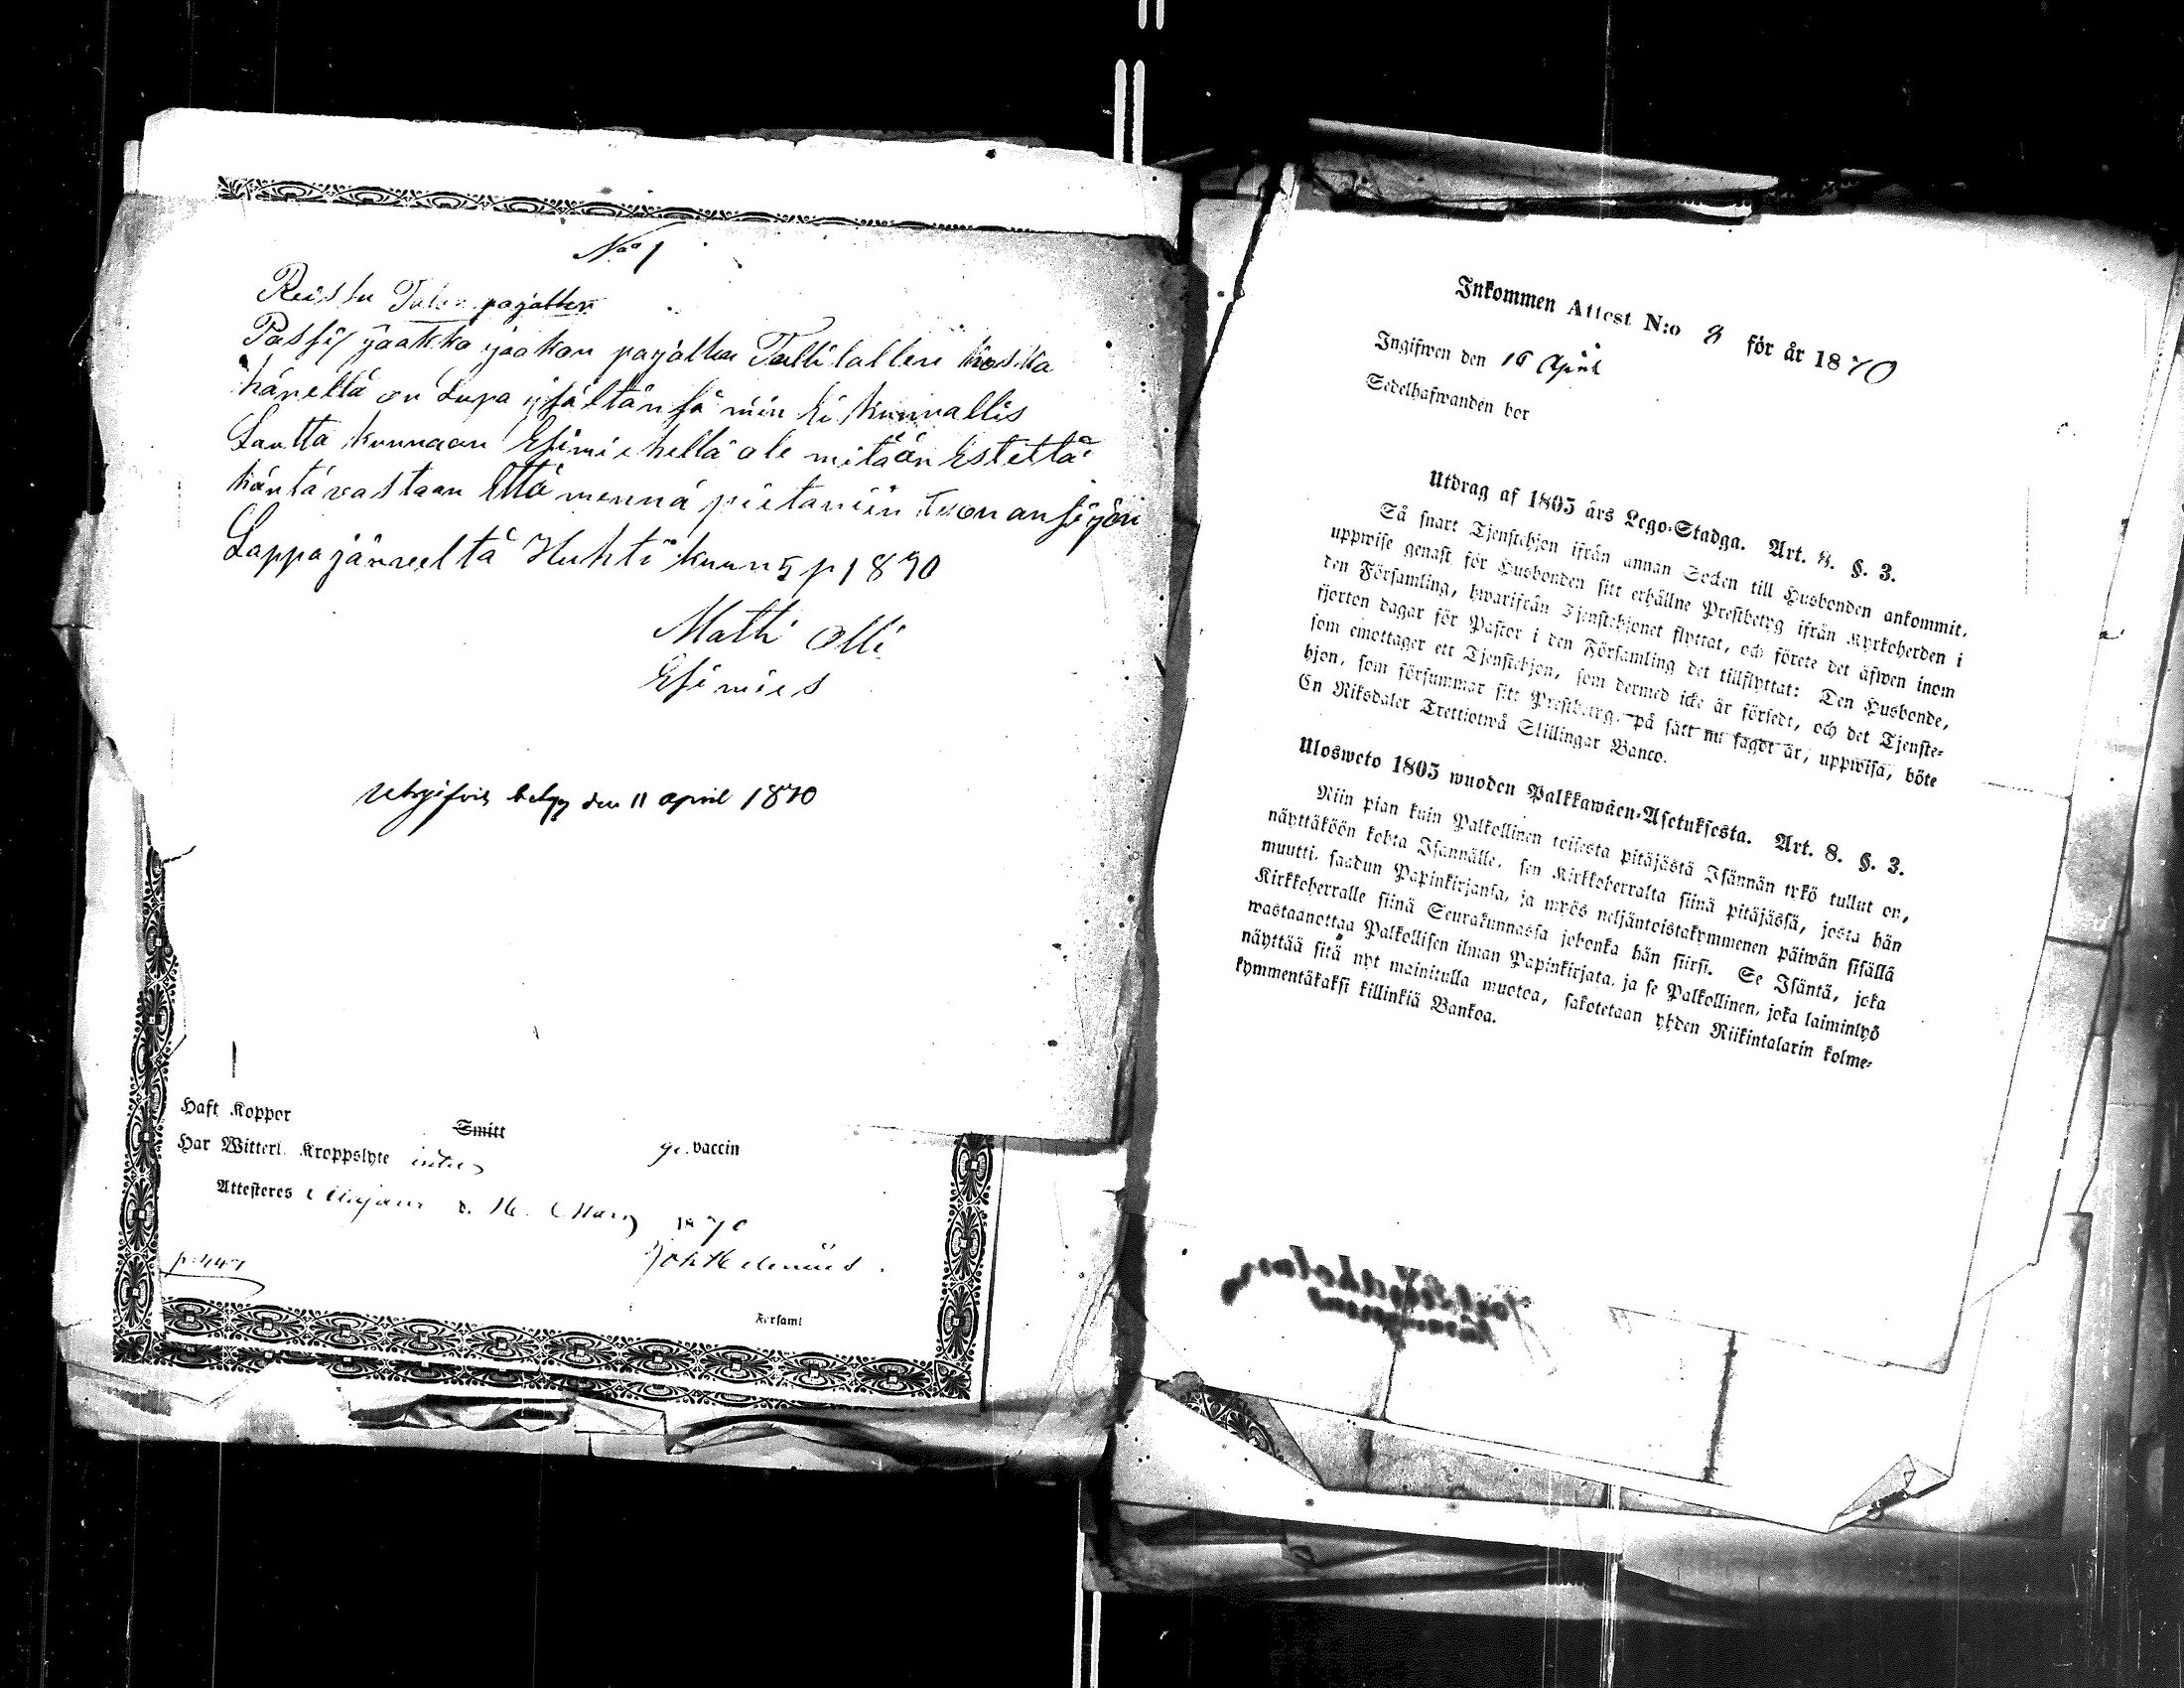 No 1
Reissu Talon pojallen
Passi jaakko jaakon pojallen Tallilallen koska
hänellä on Lupa isältänsä niin ei kunnallis
Lautta kunnaan Esimiehellä ole mitään Estettä
häntä vastaan Että mennä pietariin Työn ansijon
Lappajärveeltä Huhti kuun 5 p 1870
Matti Olli
Esimies
Utgifvit betyg den 11 april 1870
Haft Koppor
Smitt
vaccin
Har Witterl. Kroppslyte intet
Attesteres d. 16. Mars 1870
Joh Helenius.
p. 447
Forsaml
Inkommen Attest N:o 8 för år 1870
Ingifwen den 16 April
Sedelhafwanden bor
Utdrag af 1805 års Lego-Stadga. Art. 8. §. 3.
Så snart Tjenstehjon ifrån annan Socken till Husbonden ankommit,
uppwise genast för Husbonden sitt erhållne Prestbetyg ifrån Kyrkoherden i
den Församling, hwarifrån Tjenstehjonet flyttat, och förete det äfwen inom
fjorton dagar för Pastor i den Församling det tillflyttat: Den Husbonde,
som emottager ett Tjenstehjon, som dermed icke är försedt, och det Tjenste-
hjon, som försummar sitt Prestbetyg, på sätt nu sagdt är, uppwisa, böte
En Riksdaler Trettiotwå Skillingar Banco.
Ulosweto 1805 wuoden Palkkawäen-Asetuksesta. Art. 8. §. 3.
Niin pian kuin Palkollinen toisesta pitäjästä Isännän tykö tullut on,
näyttäköön kohta Isännälle, sen Kirkkoherralta siinä pitäjässä, josta hän
muutti, saadun Papinkirjansa, ja myös neljäntoistakymmenen päiwän sisällä
Kirkkoherralle siinä Seurakunnassa johonka hän siirsi. Se Isäntä, joka
wastaanottaa Palkollisen ilman Papinkirjata, ja se Palkollinen, joka laiminlyö
näyttää sitä nyt mainitulla muotoa, sakotetaan yhden Riikintalarin kolme-
kymmentäkaksi killinkiä Bankoa.